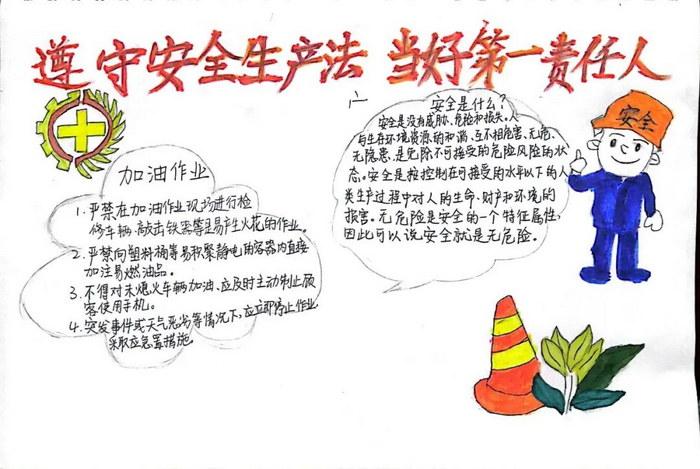 遵守安全生产法 当好第一责任人
加油作业
1. 严禁在加油作业现场进行检
修车辆、敲击铁器等易产生火花的作业。
2. 严禁向塑料桶等易积聚静电的容器内直接
加注易燃油品。
3. 不得对未熄火车辆加油、应及时主动制止顾
客使用手机。
4. 突发事件或天气恶劣等情况下,应立即停止作业,
采取应急置措施。
安全是什么?
安全是没有威胁、危险和损失。人
与生存环境资源的和谐、互不相危害、无危、
无隐患,是免除不可接受的危险风险的状
态。安全是将控制在可接受的水平以下的人
类生产过程中对人的生命、财产和环境的
损害。无危险是安全的一个特征属性,
因此可以说安全就是无危险。
安全